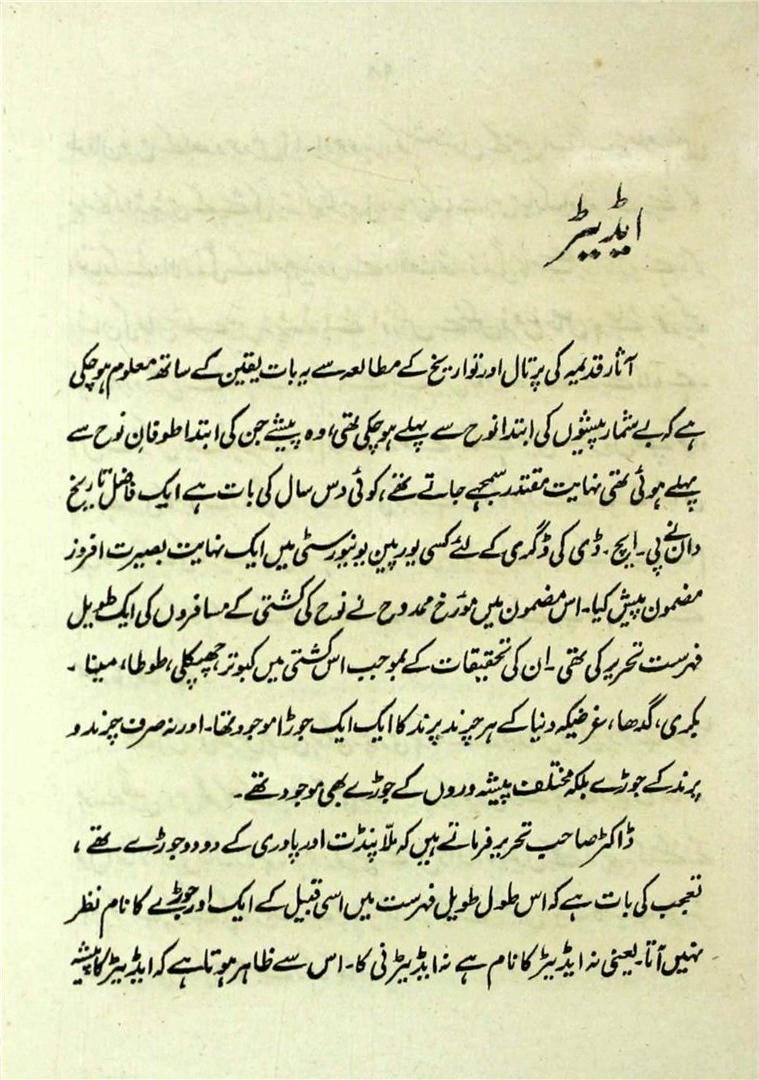 ایڈیٹر
آثار قدیمہ کی پرتال اور تواریخ کے مطالعہ سے یہ بات یقین کے ساتھ معلوم ہو چکی
ہے کہ بے شمار پیشوں کی ابتدا نوح سے پہلے ہو چکی تھی، وہ پیشے جن کی ابتدا طوفانِ نوح سے
پہلے ہوئی تھی نہایت مقتدر سمجھے جاتے تھے، کوئی دس سال کی بات ہے ایک فاضل تاریخ
دان نے پی۔ ایچ۔ ڈی کی ڈگری کے لئے کسی یورپین یونیورسٹی میں ایک نہایت بصیرت افروز
مضمون پیش کیا۔ اس مضمون میں مؤرخ ممدوح نے نوح کی کشتی کے مسافروں کی ایک طویل
فہرست تحریر کی تھی۔ ان کی تحقیقات کے بموجب اس کشتی میں کبوتر، چھپکلی، طوطا، مینا۔
بکری، گدھا، غرضیکہ دنیا کے ہر چرند پرند کا ایک ایک جوڑا موجود تھا۔ اور نہ صرف چرند و
پرند کے جوڑے بلکہ مختلف پیشہ وروں کے جوڑے بھی موجود تھے۔
ڈاکٹر صاحب تحریر فرماتے ہیں کہ ملّا پنڈت اور پادری کے دو دو جوڑے تھے،
تعجب کی بات ہے کہ اس طول طویل فہرست میں اسی قبیل کے ایک اور جوڑے کا نام نظر
نہیں آتا۔ یعنی نہ ایڈیٹر کا نام ہے نہ ایڈیٹرنی کا۔ اس سے ظاہر ہوتا ہے کہ ایڈیٹر کا پیشہ